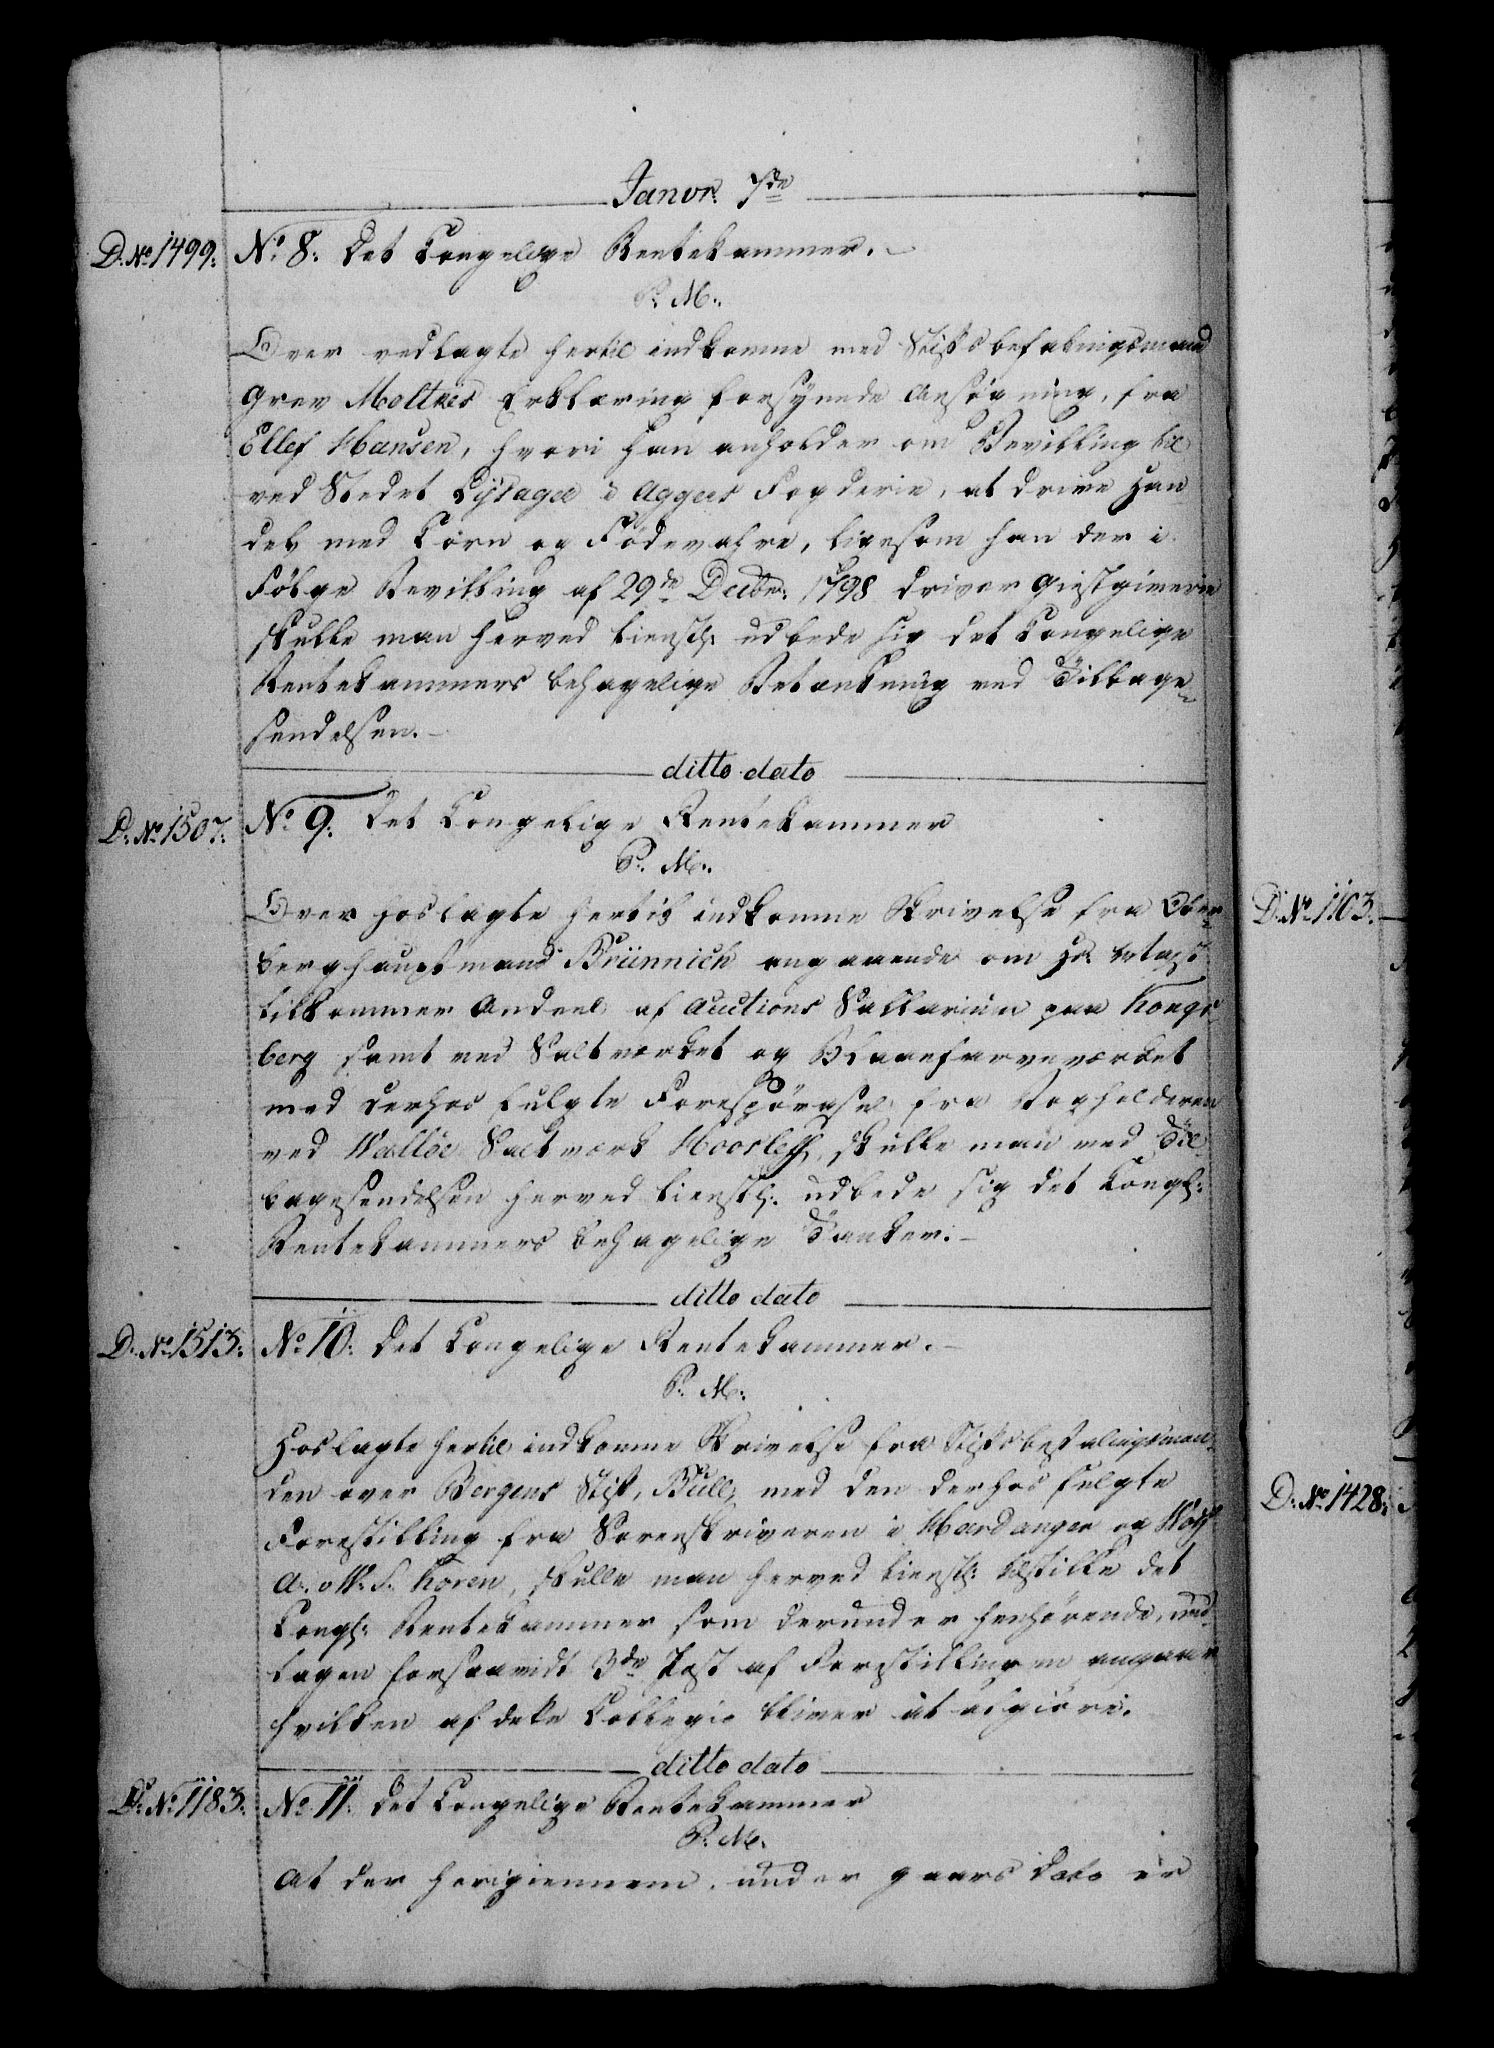 Janvr. 7de
D. No 1499. No 8. Det Kongelige Rentekammer.
P. M.
Over vedlagte hertil indkomne med Stiftsbefalingsmand
Grev Moltkes Erklæring forsynede Ansøgning, fra
Ellef Hansen, hvori han anholder om Bevilling til
ved Stedet Lysager i Aggers Fogderie, at drive Han
del med Korn og Fødevahre, ligesom han der i
Følge Bevilling af 29de Decbr. 1798 driver Giestgiverie
skulle man herved tienstl. udbede sig det Kongelige
Rentekammers behagelige Betænkning ved Tilbage
sendelsen.
ditto dato
D. No 1507. No 9. Det Kongelige Rentekammer
P. M.
Over hoslagte hertil indkomne Skrivelse fra Ober
berghauptmand Brünnich angaaende om
tilkommer Andeel af Auctions Sallarium paa Kongs
berg samt ved Saltværket og Blaaefarveværket
med derhos fulgte Forespørgsel fra Bogholderen
ved Walløe Saltværk Hoorleff, skulle man ved Til
bagesendelsen herved tienstl. udbede sig det Kongl.
Rentekammers behagelige Tanker.
ditto dato
D. No 1513. No 10. Det Kongelige Rentekammer.
P. M.
Hoslagte hertil indkomne Skrivelse fra Stiftsbefalingsman
den over Bergens Stift, Bull, med den derhos fulgte
Forestilling fra Sorenskriveren i Hardanger og
A. W. S. Koren, skulle man herved tienstl. tilstille det
Kongl. Rentekammer som derunder henhørende, und
tagen forsaavidt 3de Post af Forestillingen angaaer
hvilken af dette Collegio bliver at afgiøre.
ditto dato
D. No 1183. No 11. Det Kongelige Rentekammer
P. M.
At der herigiennem under Gaars Dato er
D. No 1103.
D. No 1428.